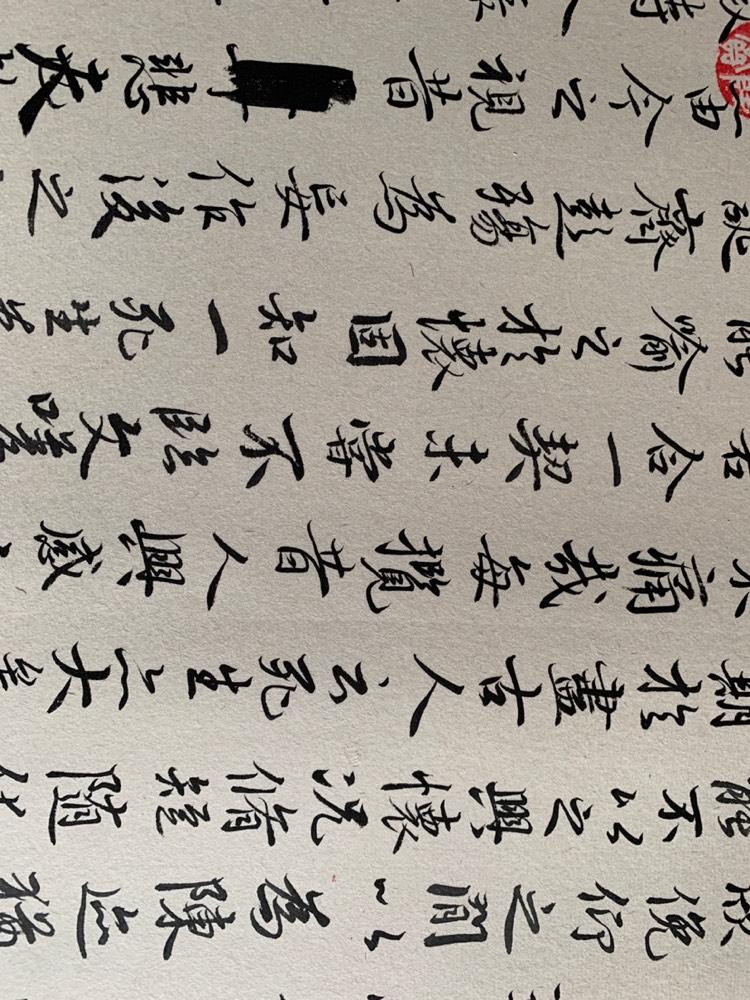 欣俛仰之間以為陳迹猶
能不以之興懷況脩短隨化
期於盡古人云死生亦大矣
不痛哉每攬昔人興感
若合一契未嘗不臨文嗟
能喻之於懷固知一死生為
誕齊彭殤為妄作後之
由今之視昔悲夫